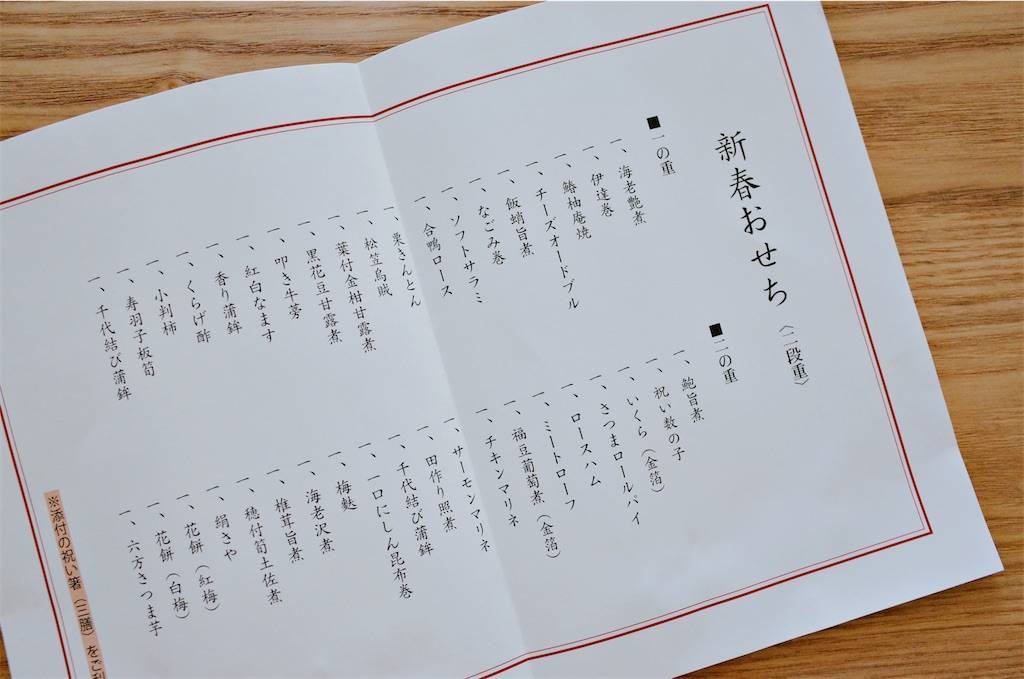 新春おせち〈二段重〉
■一の重
一、海老艶煮
一、伊達巻
一、鰆柚庵焼
一、チーズオードブル
一、飯蛸旨煮
一、なごみ巻
一、ソフトサラミ
一、合鴨ロース
一、栗きんとん
一、松笠烏賊
一、葉付金柑甘露煮
一、黒花豆甘露煮
一、叩き牛蒡
一、紅白なます
一、香り蒲鉾
一、くらげ酢
一、小判柿
一、寿羽子板筍
一、千代結び蒲鉾
■二の重
一、鮑旨煮
一、祝い数の子
一、いくら（金箔）
一、さつまロールパイ
一、ロースハム
一、ミートローフ
一、福豆葡萄煮（金箔）
一、チキンマリネ
一、サーモンマリネ
一、田作り照煮
一、千代結び蒲鉾
一、一口にしん昆布巻
一、梅麩
一、海老沢煮
一、椎茸旨煮
一、穂付筍土佐煮
一、絹さや
一、花餅（紅梅）
一、花餅（白梅）
一、六方さつま芋
※添付の祝い箸（三膳）をご利